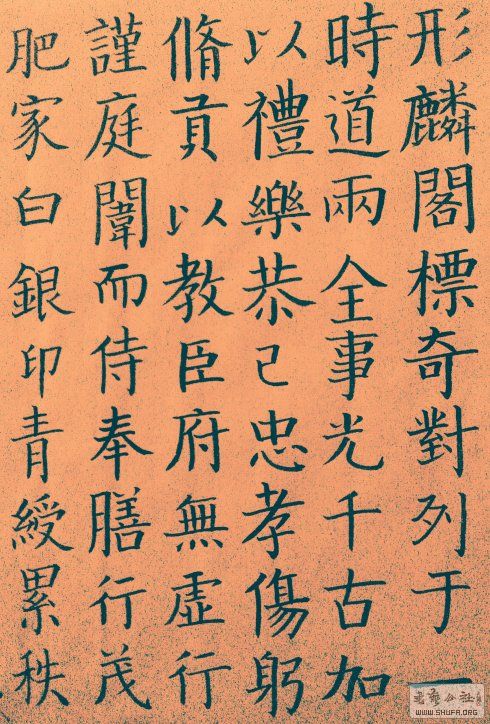 形麟閣標奇對列于
時道兩全事光千古加
以禮樂恭己忠孝傷躬
脩貢以教臣府無虛行
謹庭闈而侍奉膳行茂
肥家白銀印青綬累秩
WWW.SHUFA.ORG